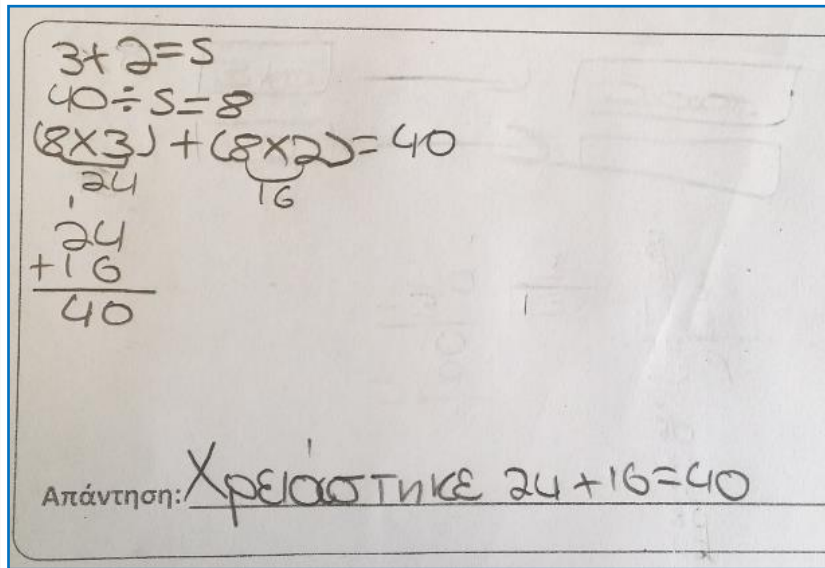 3+2=5
40÷5=8
(8×3)+(8×2)=40
24 16
1
24
+16
40
Απάντηση: Χρειάστηκε 24+16=40